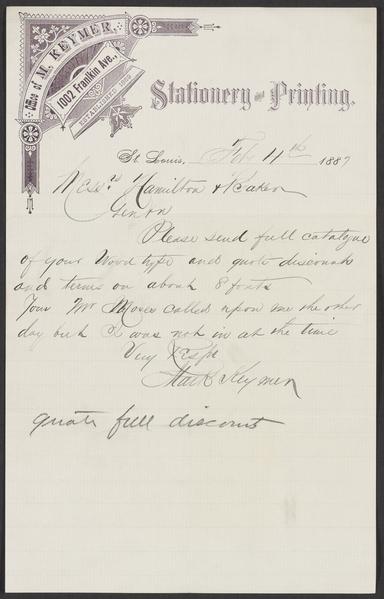 Office of M. KEYMER,
1002 Franklin Ave.,
ESTABLISHED
Stationery and Printing.
St. Louis, Feb 11th 1887
Mess rs Hamilton & Baker
Gen
Please send full catalogue
of your Wood type and quote discounts
and terms on about 8 fonts
Your Mr Moses called upon me the other
day but I was not in at the time
Very Resp
Mark Keymer
quote full discount